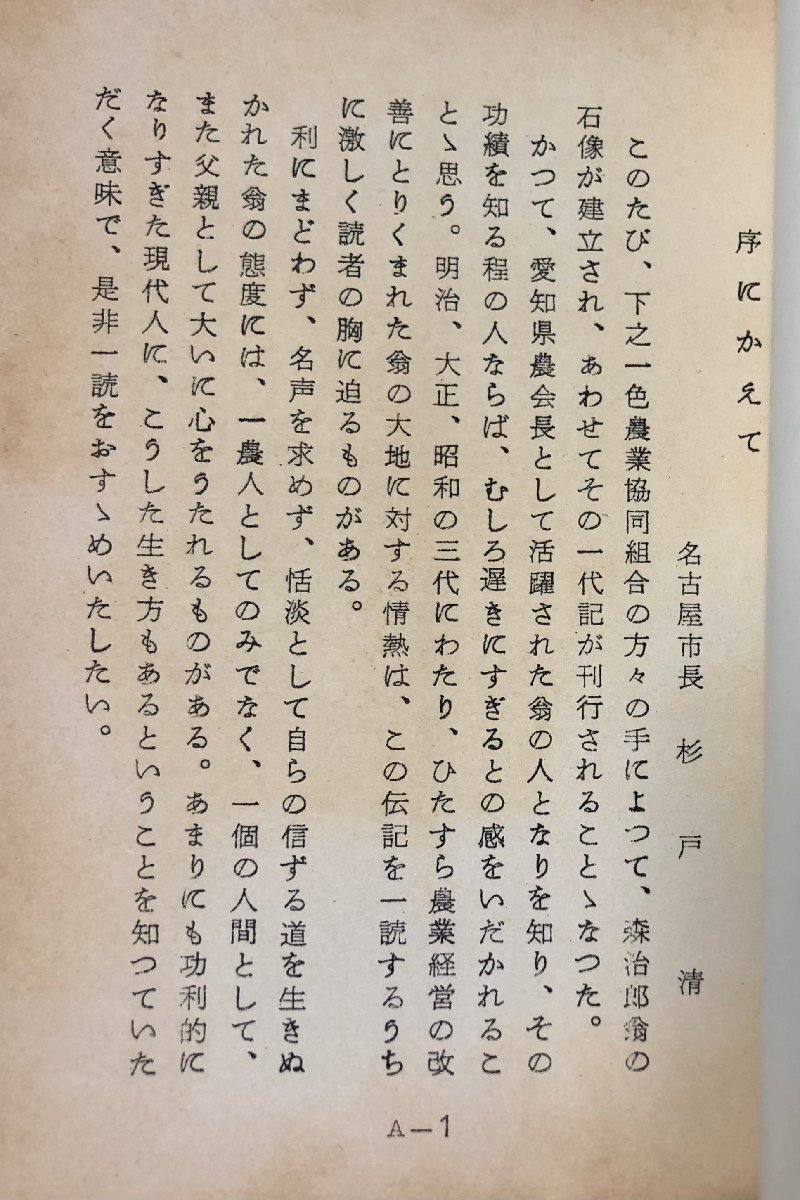 序にかえて
名古屋市長 杉戸 清
このたび、下之一色農業協同組合の方々の手によつて、森治郎翁の
石像が建立され、あわせてその一代記が刊行されることゝなつた。
かつて、愛知県農会長として活躍された翁の人となりを知り、その
功績を知る程の人ならば、むしろ遅きにすぎるとの感をいだかれるこ
とゝ思う。明治、大正、昭和の三代にわたり、ひたすら農業経営の改
善にとりくまれた翁の大地に対する情熱は、この伝記を一読するうち
に激しく読者の胸に迫るものがある。
利にまどわず、名声を求めず、恬淡として自らの信ずる道を生きぬ
かれた翁の態度には、一農人としてのみでなく、一個の人間として、
また父親として大いに心をうたれるものがある。あまりにも功利的に
なりすぎた現代人に、こうした生き方もあるということを知つていた
だく意味で、是非一読をおすゝめいたしたい。
A—1